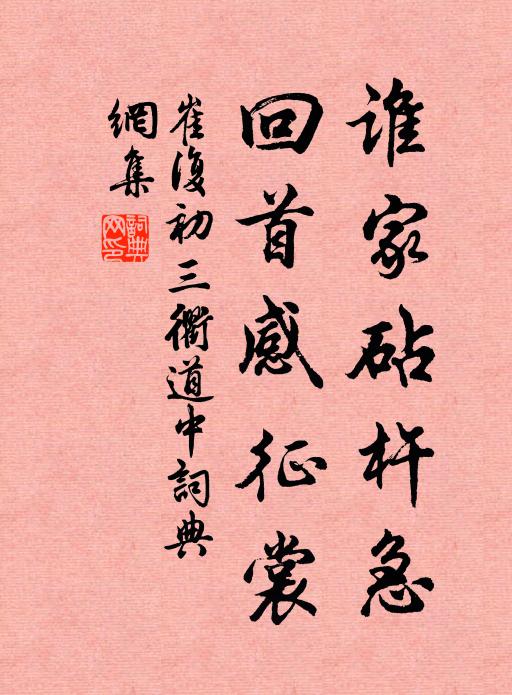 谁家砧杵急
回首感征裳
崔復初三衢道中詞典
網集
詞典網印